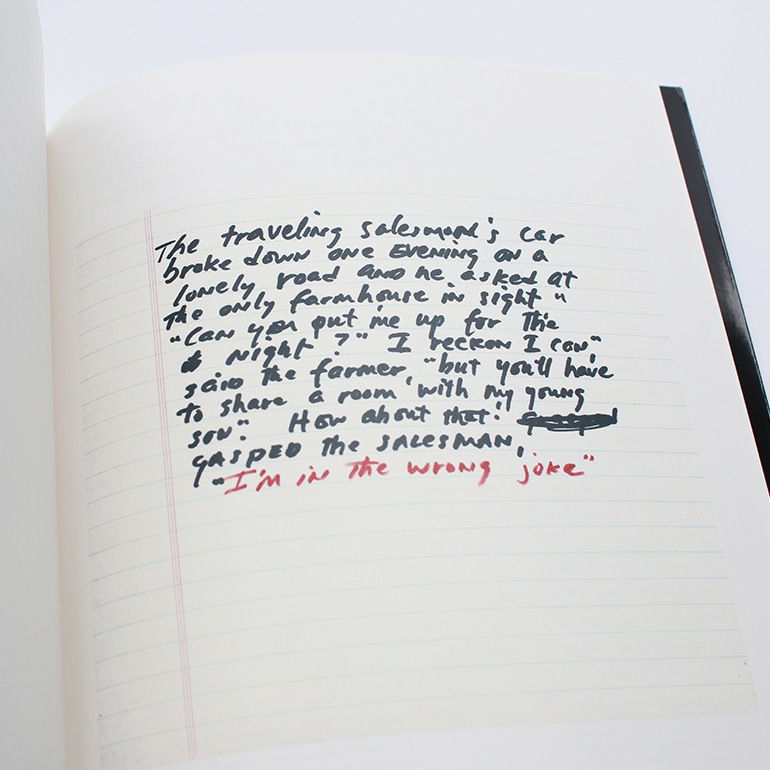 The traveling salesman's car
broke down one EVENING on a
lonely road and he asked at
the only farmhouse in sight "
"Can you put me up for the
night?" I reckon I can"
said the farmer, "but you'll have
to share a room with my young
son". How about that!
GASPED the SALESMAN,
"I'm in the wrong joke"